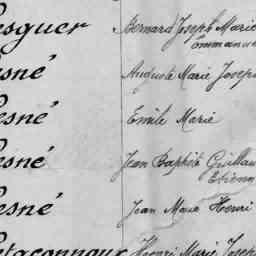 esquer Bernard Joseph Marie
Emmanuel
esné Auguste Marie Joseph
esné Emile Marie
esné Jean Baptiste Guillaume
Etienne
esné Jean Marie Henri
Henri Marie Joseph